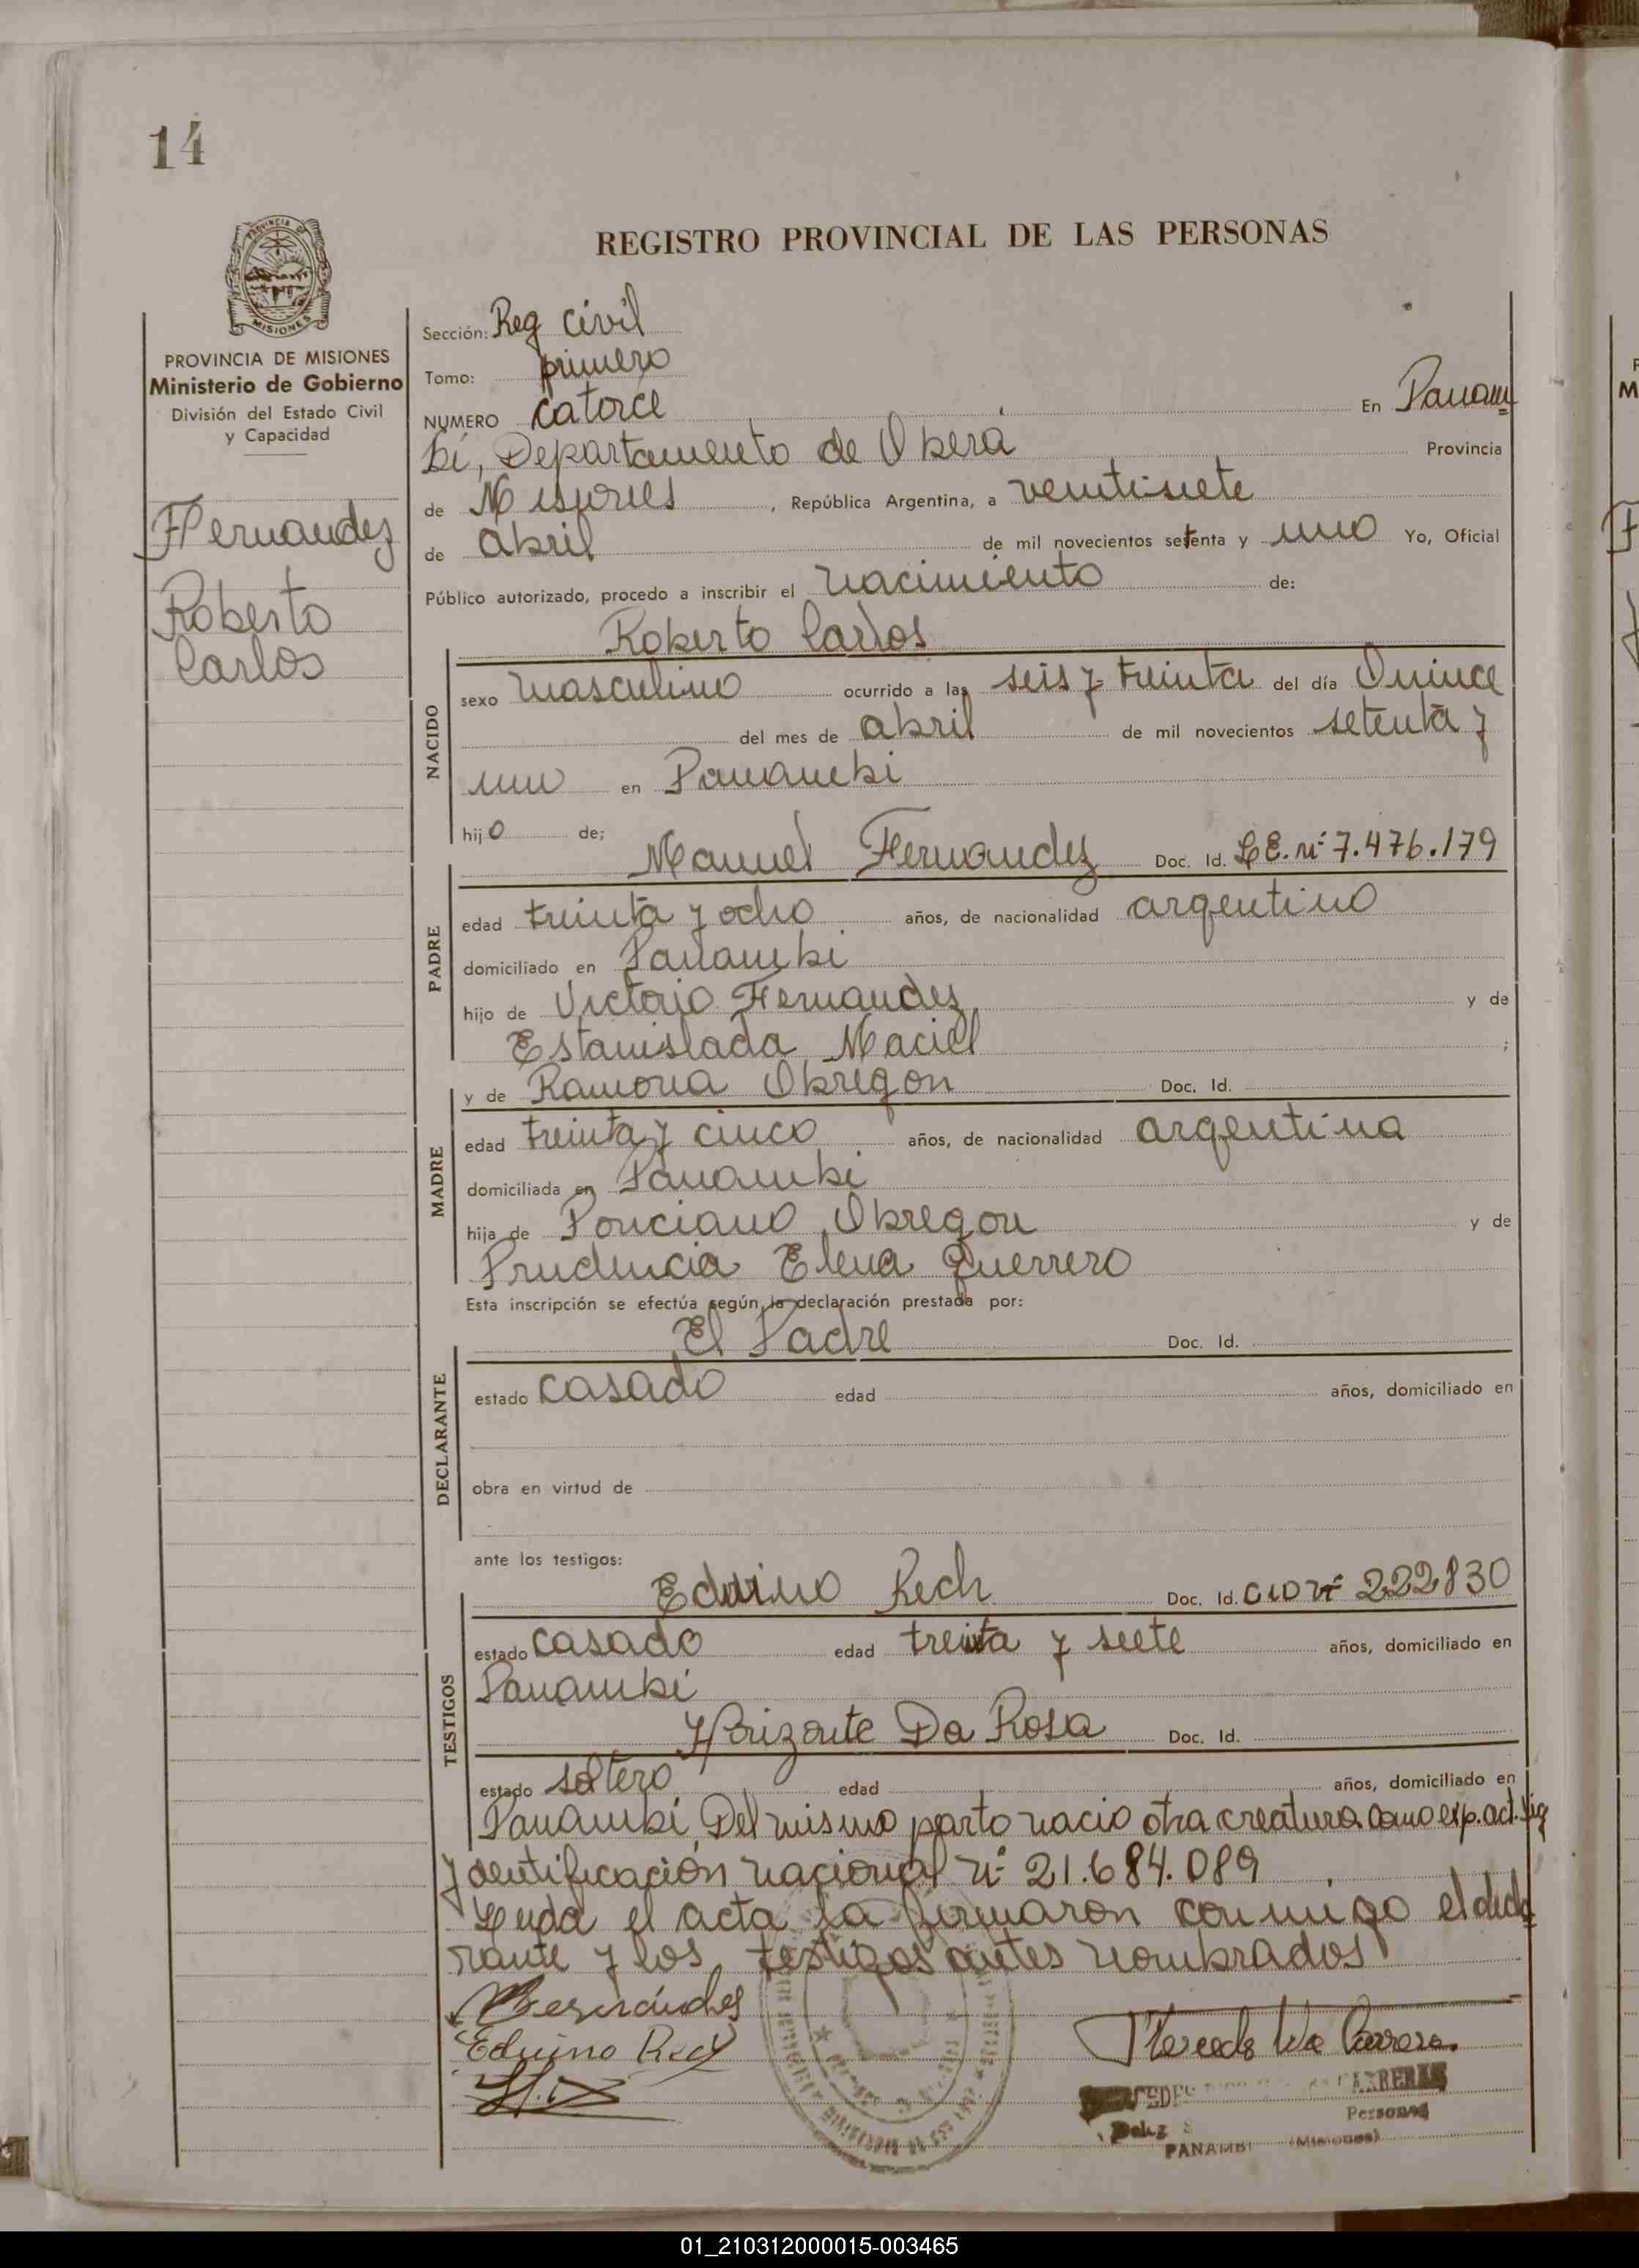 14
REGISTRO PROVINCIAL DE LAS PERSONAS
PROVINCIA DE MISIONES
Ministerio de Gobierno
División del Estado Civil
y Capacidad
Fernandez
Roberto
Carlos
Sección: Reg Civil
Tomo: primero
NUMERO catorce En Panam
bí, Departamento de Oberá Provincia
de Misiones, República Argentina, a veintisiete
de abril de mil novecientos setenta y uno Yo, Oficial
Público autorizado, procedo a inscribir el nacimiento de:
Roberto Carlos
NACIDO
sexo masculino ocurrido a las seis y treinta del día Quince
del mes de abril de mil novecientos setenta y
uno en Panambi
hijo de; Manuel Fernandez Doc. Id. LE. nº 7.476.179
PADRE
edad treinta y ocho años, de nacionalidad argentino
domiciliado en Panambi
hijo de Victorio Fernandez y de
Estanislada Maciel ;
y de Ramona Obregon Doc. Id.
MADRE
edad treinta y cinco años, de nacionalidad argentina
domiciliada en Panambi
hija de Ponciano Obregon y de
Prudencia Elena Guerrero
Esta inscripción se efectúa según la declaración prestada por:
El Padre Doc. Id.
DECLARANTE
estado casado edad años, domiciliado en
obra en virtud de
ante los testigos:
Eduino Rech Doc. Id. nº 222830
TESTIGOS
estado casado edad treinta y siete años, domiciliado en
Panambí
Horizonte Da Rosa Doc. Id.
estado soltero edad años, domiciliado en
Panambí. Del mismo parto nacio otra creatura como exp. act. sig
Identificación nacional nº 21.684.089
Leida el acta la firmaron conmigo el decla
rante y los testigos antes nombrados
Eduino Rech
PANAMBI (Misiones)
01_210312000015-003465